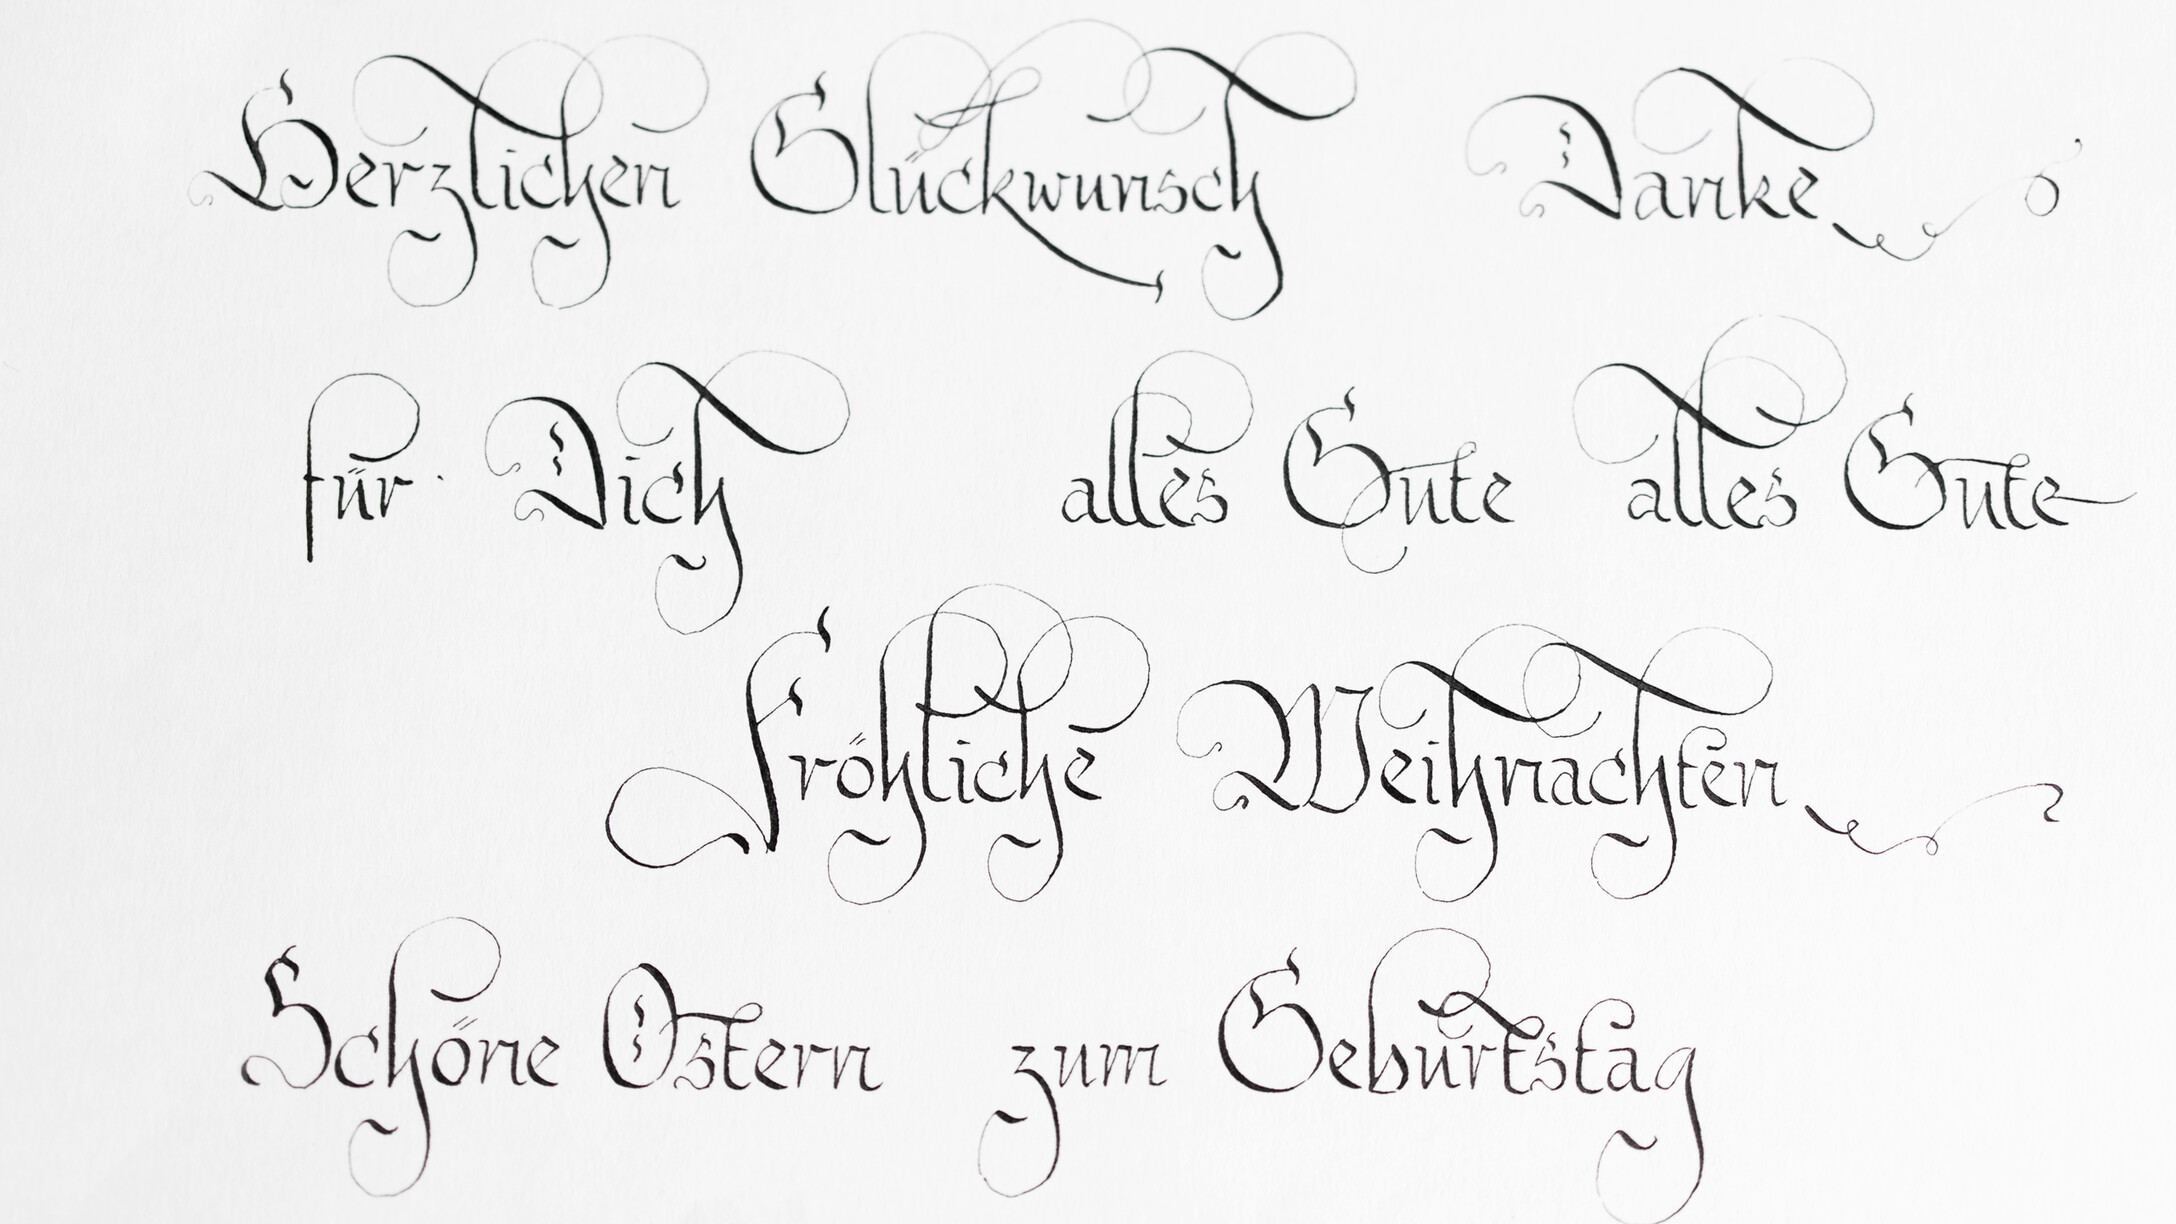 Herzlichen Glückwunsch Danke
für Dich alles Gute alles Gute
Fröhliche Weihnachten
Schöne Ostern zum Geburtstag